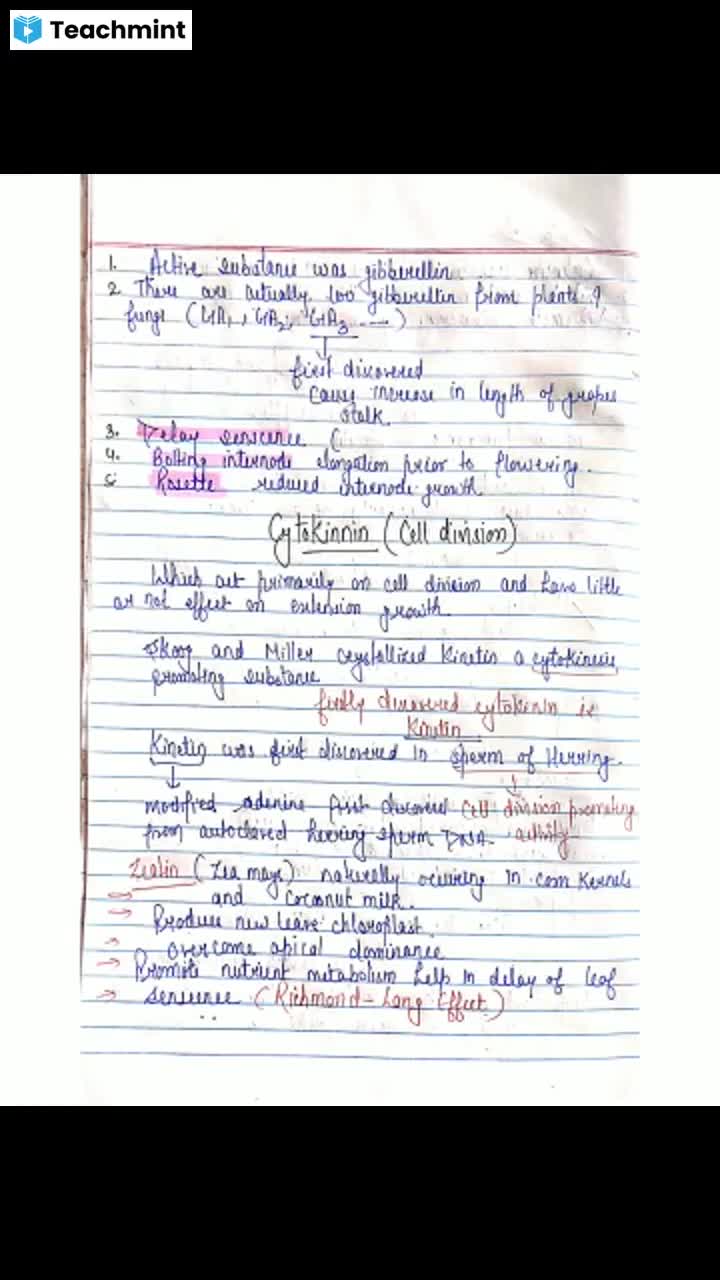 Teachmint
1. Active substance was gibberellin
2 There are actually 100 gibberellin from plants &
fungi (GA1, GA2, GA3 ---)
↓
first discovered
cause increase in length of grapes
stalk
3. Delay senscence (
4. Bolting internode elongation prior to flowering.
5 Rosette reduced internode growth
Cytokinnin (Cell division)
Which act primarily on cell division and have little
or not effect on extension growth
Skoog and Miller crystallized Kinetin a cytokinesis
promoting substance
firstly discovered cytokinin is
Kinetin
Kinetin was first discovered in sperm of Herring
↓ ↓
modified adenine first discovered cell division promoting
from autoclaved herring sperm DNA. activity
Zeatin (Zea mays) naturally occuring in corn kernels
and coconut milk.
→ Produce new leave chloroplast.
→ overcome apical dominance
→ Promote nutrient metabolism help in delay of leaf
→ senscence (Richmond-Lang Effect)